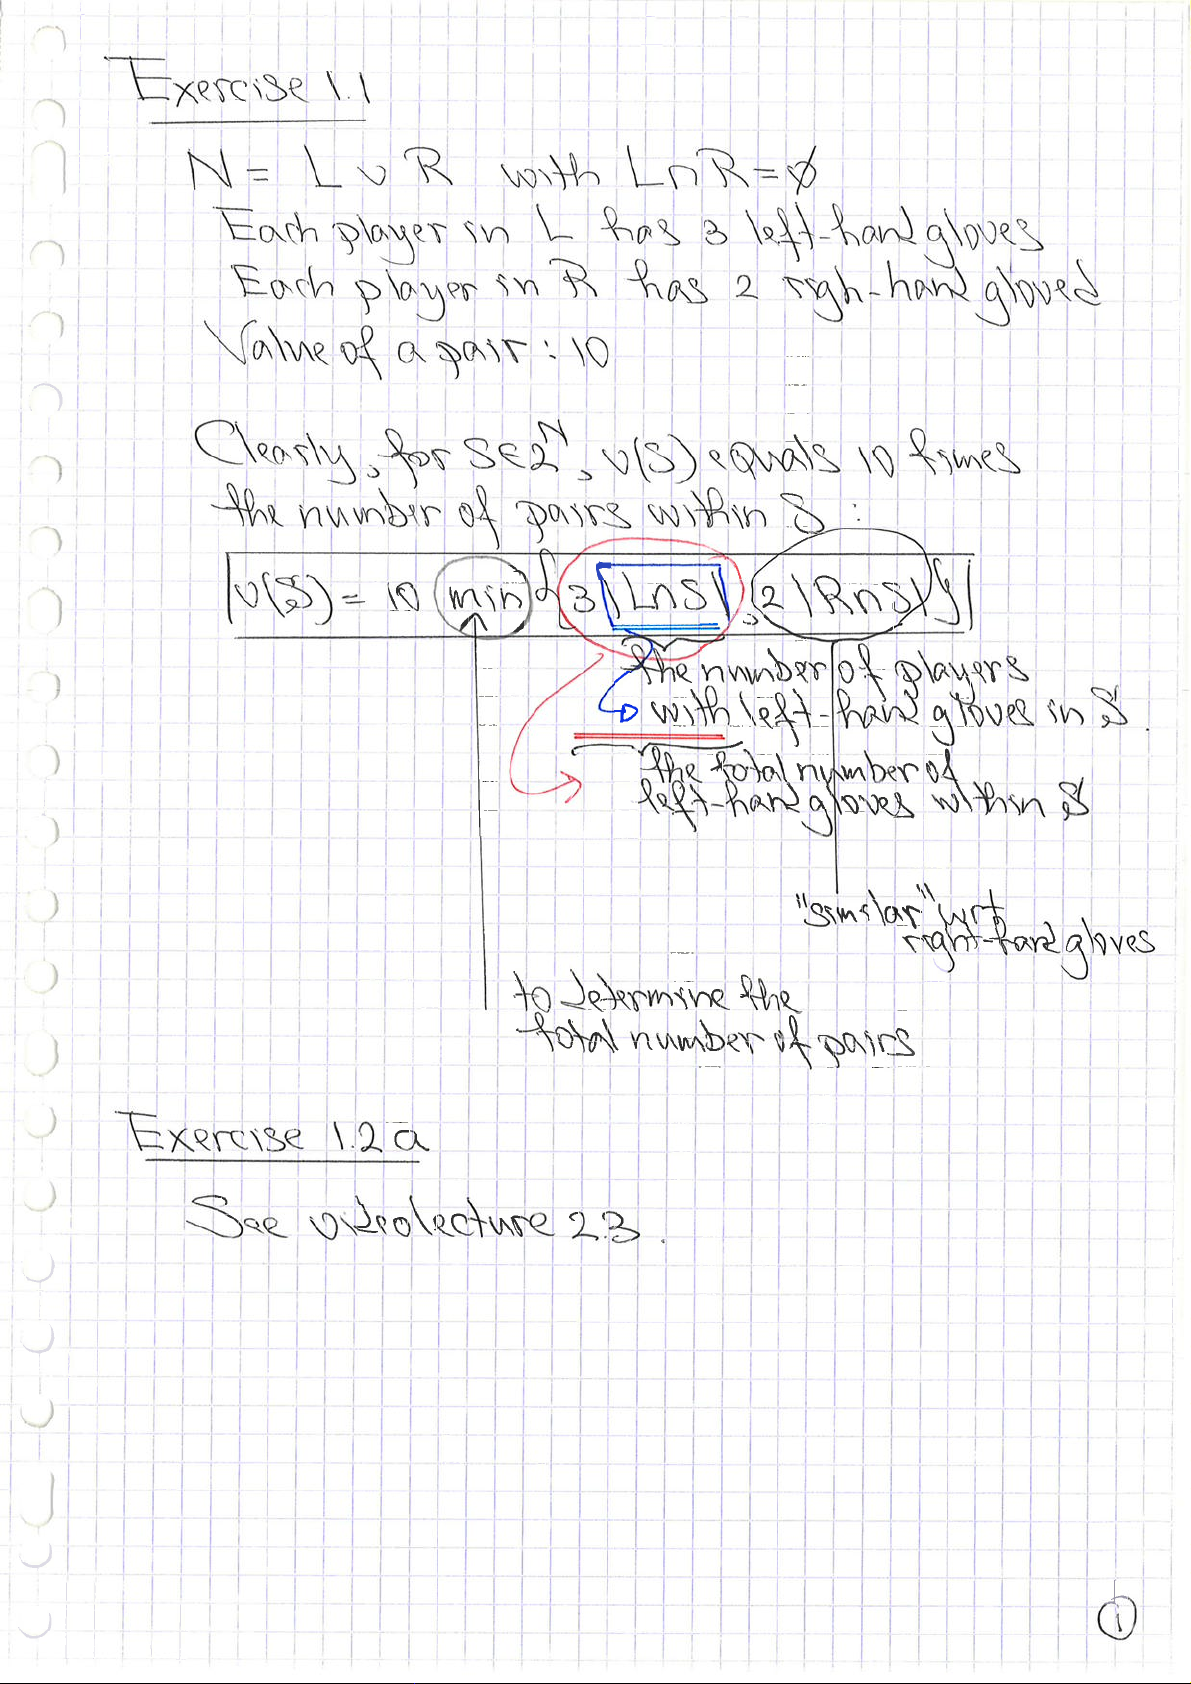 Exercise 1.1
N = L ∪ R with L∩R = ∅
Each player in L has 3 left-hand gloves
Each player in R has 2 righ-hand gloved
Value of a pair : 10
Clearly, for S∈2^N, v(S) equals 10 times
the number of pairs within S :
v(S) = 10 min {3 |L∩S|, 2 |R∩S|}
the number of players
with left-hand gloves in S.
the total number of
left-hand gloves within S
"similar" wrt
right-hand gloves
to determine the
total number of pairs
Exercise 1.2 a
See videolecture 2.3.
1